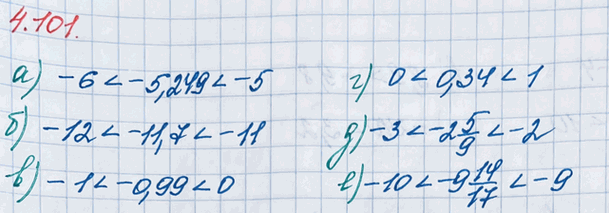 4.101.
а) -6 < -5,249 < -5
б) -12 < -11,7 < -11
в) -1 < -0,99 < 0
г) 0 < 0,34 < 1
д) -3 < -2 5/9 < -2
е) -10 < -9 14/17 < -9